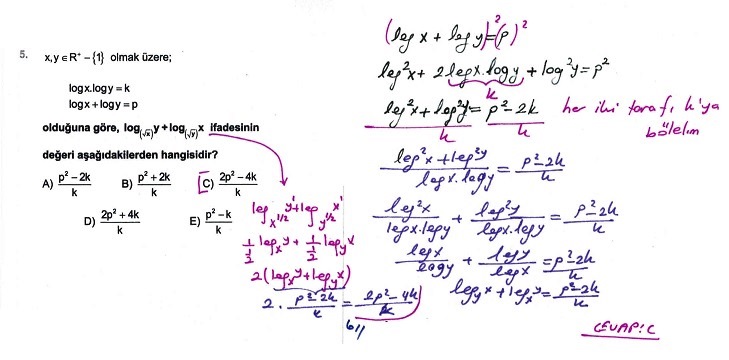 5. x,y ∈ R⁺ − {1} olmak üzere;
logx.logy = k
logx + logy = p
olduğuna göre, log₍√ₓ₎y + log₍√y₎x ifadesinin
değeri aşağıdakilerden hangisidir?
A) (p² − 2k)/k B) (p² + 2k)/k C) (2p² − 4k)/k
D) (2p² + 4k)/k E) (p² − k)/k
log_{x^{1/2}} y¹ + log_{y^{1/2}} x¹
1/(1/2) log_x y + 1/(1/2) log_y x
2(log_x y + log_y x)
2 . (p² − 2k)/k = (2p² − 4k)/k
(log x + log y)² = (p)²
log²x + 2 logx.logy + log²y = p²
k
(log²x + log²y)/k = (p² − 2k)/k her iki tarafı k'ya
bölelim
(log²x + log²y)/(logx.logy) = (p² − 2k)/k
log²x/(logx.logy) + log²y/(logx.logy) = (p² − 2k)/k
logx/logy + logy/logx = (p² − 2k)/k
log_y x + log_x y = (p² − 2k)/k
CEVAP: C